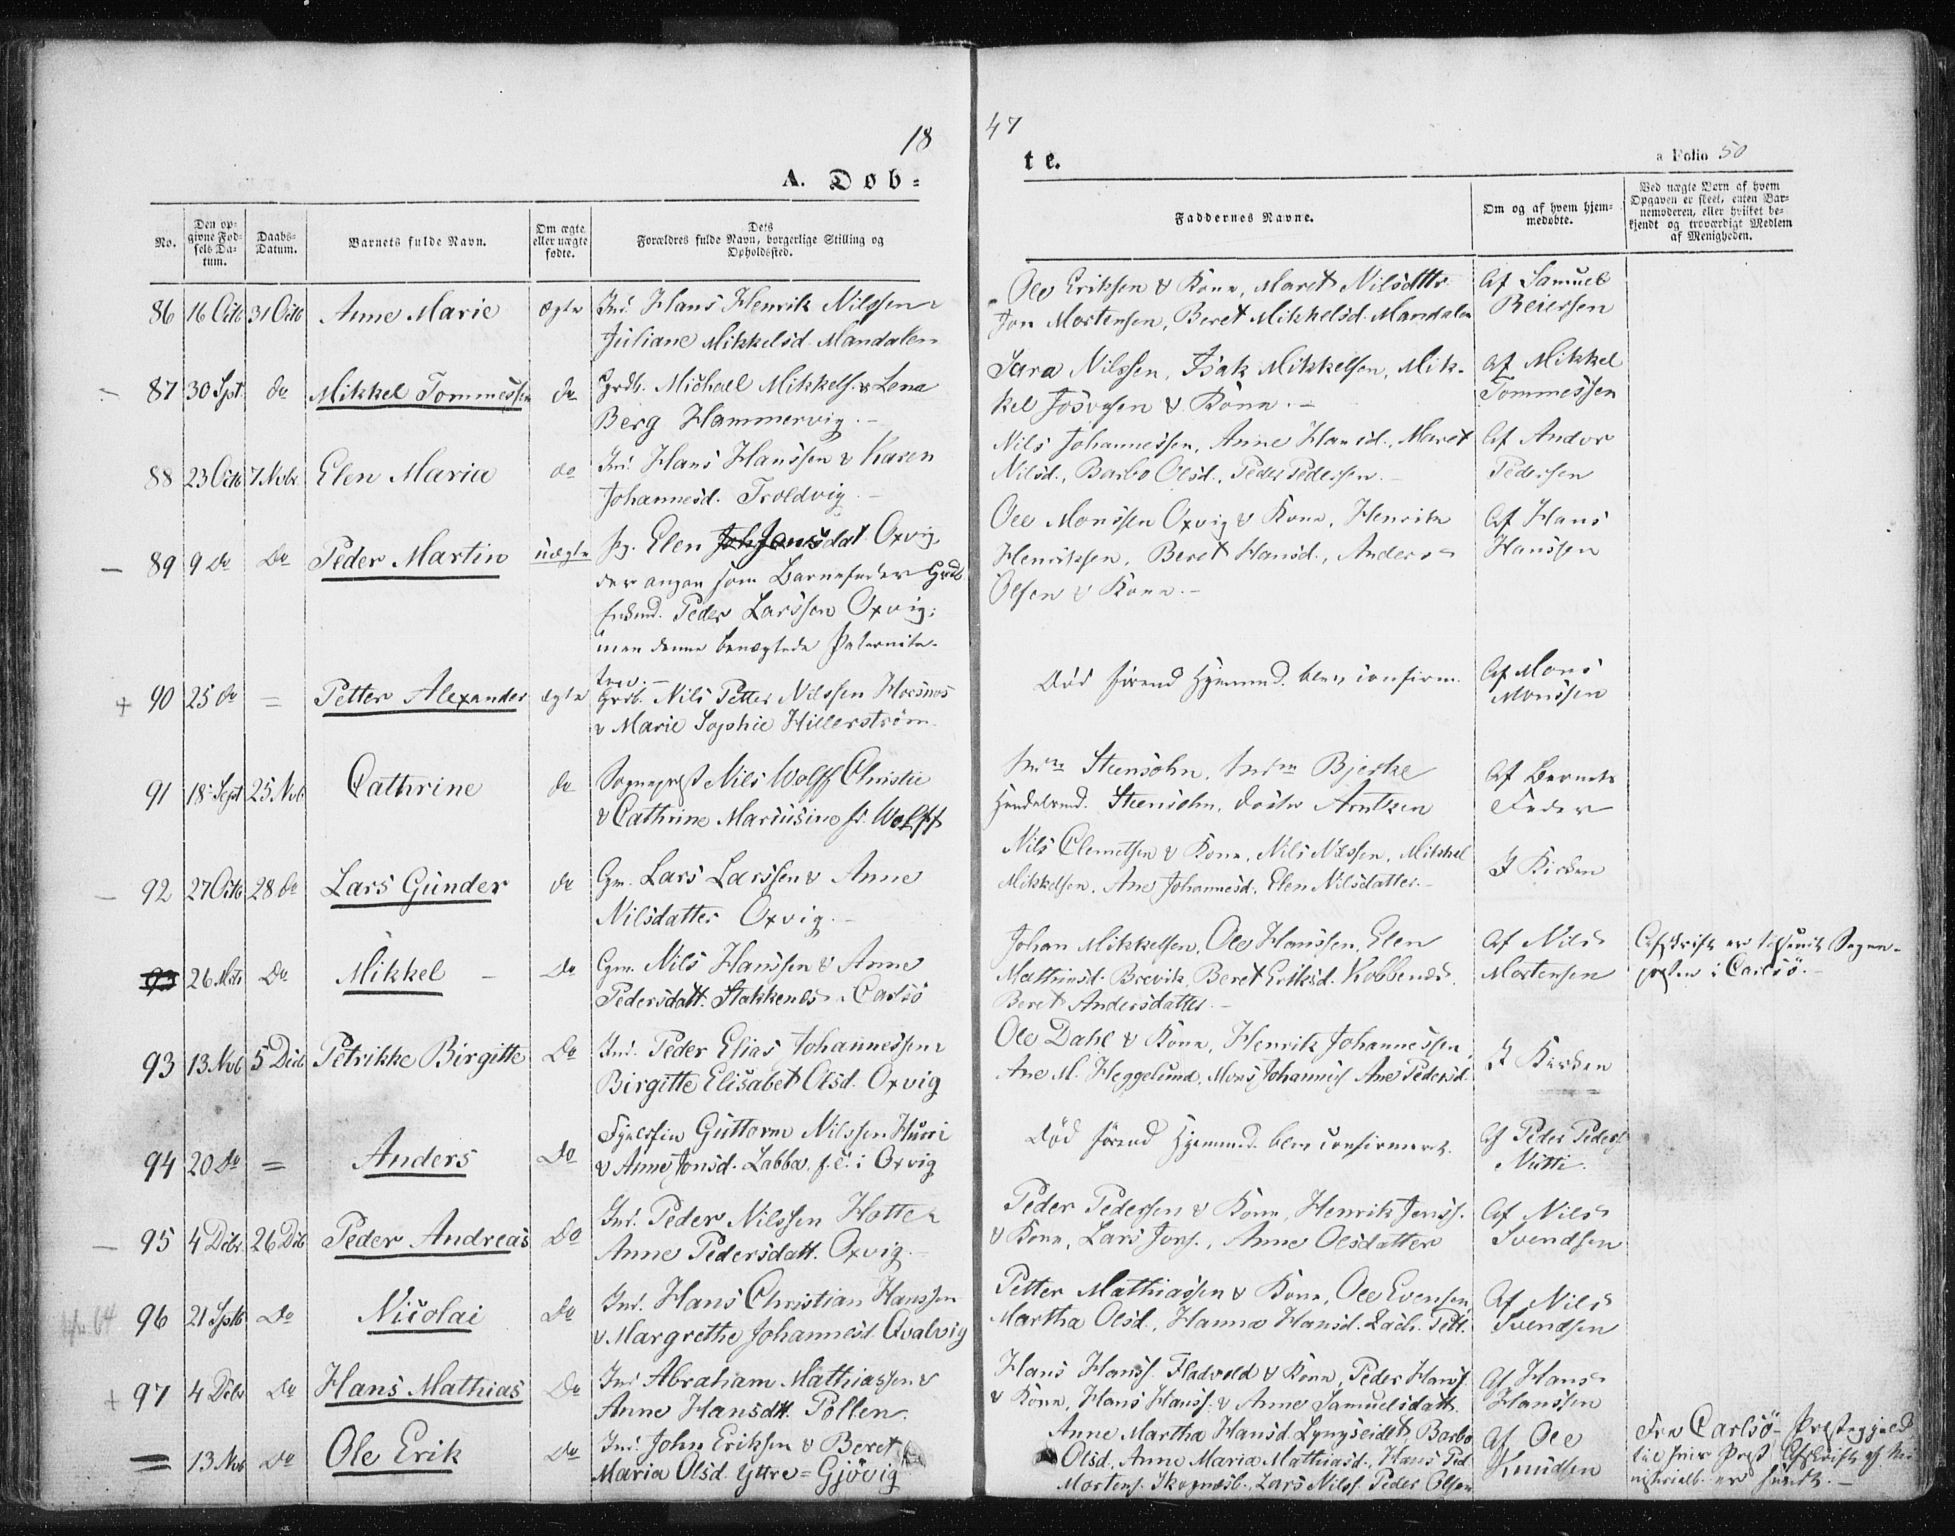 18
47
A. Døb-
te.
a Folio 50
No.
Den op-
givne Fød-
sels Da-
tum.
Daabs-
Datum.
Barnets fulde Navn.
Om ægte
eller uægte
fødte.
Dets
Forældres fulde Navn, borgerlige Stilling og
Opholdssted.
Faddernes Navne.
Om og af hvem hjem-
medøbte.
Ved uægte Børn af hvem
Opgaven er skeet, enten Bar-
nemoderen, eller hvilket be-
kjendt og troværdigt Medlem
af Menigheden.
86 16 Octb 31 Octb Anne Marie ægte Ind. Hans Henrik Nilssen
Juliane Mikkelsd. Mandalen
Ole Eriksen & Kone, Maret Nilsdttr
Jon Mortensen, Beret Mikkelsd. Mandalen
Af Samuel
Reiersen
87 30 Spt do Mikkel Tommessen do Grdb. Michael Mikkels. & Lena
Berg Hammervig.
Sara Nilssen, Isak Mikkelsen, Mik-
kel Josvasen & Kone.
Af Mikkel
Tommessen
88 23 Octb 7 Novbr Elen Maria do Ind. Hans Hanssen & Karen
Johannesd. Troldvig.
Nils Johannessen, Anne Hansd., Maret
Nilsd., Barbo Olsd., Peder Pedersen.
Af Andor
Pedersen
89 9 Do Do Peder Martin uægte Pg. Elen Jonsdat Oxvig,
der angav som Barnefader Grdb.
Peder Larssen Oxvig;
men denne benægtede Paternite-
ten.
Ole Monssen Oxvig & Kone, Henrik
Henriksen, Beret Hansd., Anders
Olsen & Kone.
Af Hans
Hanssen
+ 90 25 do = Petter Alexander ægte Grdb. Nils Petter Nilssen Horsnæs
& Marie Sophie Hillerstrøm.
Død førend Hjemmed. blev confirm.
Af Mons
Monssen
91 18 Sept 25 Nvb. Cathrine do Sogneprest Nils Wolff Christie
& Cathrine Mariusine f. Wolff
Mdm Steensohn, Mdm Bjerke
Handelsmd. Steensohn, Doctor Arntzen
Af Barnets
Fader
92 27 Octb 28 do Lars Gunder do Gm. Lars Larssen & Anne
Nilsdatter Oxvig.
Nils Clemetsen & Kone, Nils Nilssen, Mikkel
Mikkelsen, Ane Johannesd. Elen Nilsdatter.
I Kirken
93 26 Do Mikkel Do Gm. Nils Hanssen & Anne
Pedersdatt. Stakkenes i Carlsö
Johan Mikkelsen, Ole Hanssen, Elen
Mathiasd. Brevik, Beret Eriksd. Kobbenes.
Beret Andersdatter.
Af Nils
Mortensen
Afskrift er tilsendt Sogne-
presten i Carlsö.
93 13 Nvb 5 Decb Petrikke Birgitte Do Ind. Peder Elias Johannessen
Birgitte Elisabet Olsd. Oxvig
Ole Dahl & Kone, Henrik Johannessen,
Ane M. Heggelund, Mons Johannes. Ane Pedersd.
I Kirken
94 20 Do = Anders Do Fjelfin Guttorm Nilssen Hurri
& Anne Jonsd. Labba, f. E. i Oxvig
Død førend Hjemmed. blev confirmeret.
Af Peder Peders.
Nutti.
95 4 Debr. 26 Deb Peder Andreas Do Ind. Peder Nilssen Hotte
Anne Pedersdatt. Oxvig.
Peder Pedersen & Kone, Henrik Jenss.
& Kone, Lars Jons., Anne Olsdatter
Af Nils
Svendsen
96 21 Septb Do Nicolai Do Ind. Hans Christian Hanssen
& Margrethe Johannesd. Qvalvig
Petter Mathiassen & Kone, Ole Evensen,
Martha Olsd., Hanna Hansd. Zach. Ped.
Af Nils
Svendsen
+ 97 4 Debr Do Hans Mathias Do Ind. Abraham Mathiassen &
Anne Hansdtt. Pollen.
Hans Hanss. Fladvold & Kone, Peder Hanss.
& Kone, Hans Hanss. & Anne Samuelsdatt.
Af Hans
Hanssen
= 13 Nvb Do Ole Erik Do Ind. John Eriksen & Beret
Maria Olsd. Yttre=Gjövig
Anne Martha Hansd. Lyngseidet, Barbo
Olsd., Anne Maria Mathiasd., Hans Ped.
Mortens. Skognæsb., Lars Nilss. Peder Olsen
Af Ole
Knudsen
Fra Carlsö Prestegjæld
Afskrift af Mi-
nisterialb. er sendt.